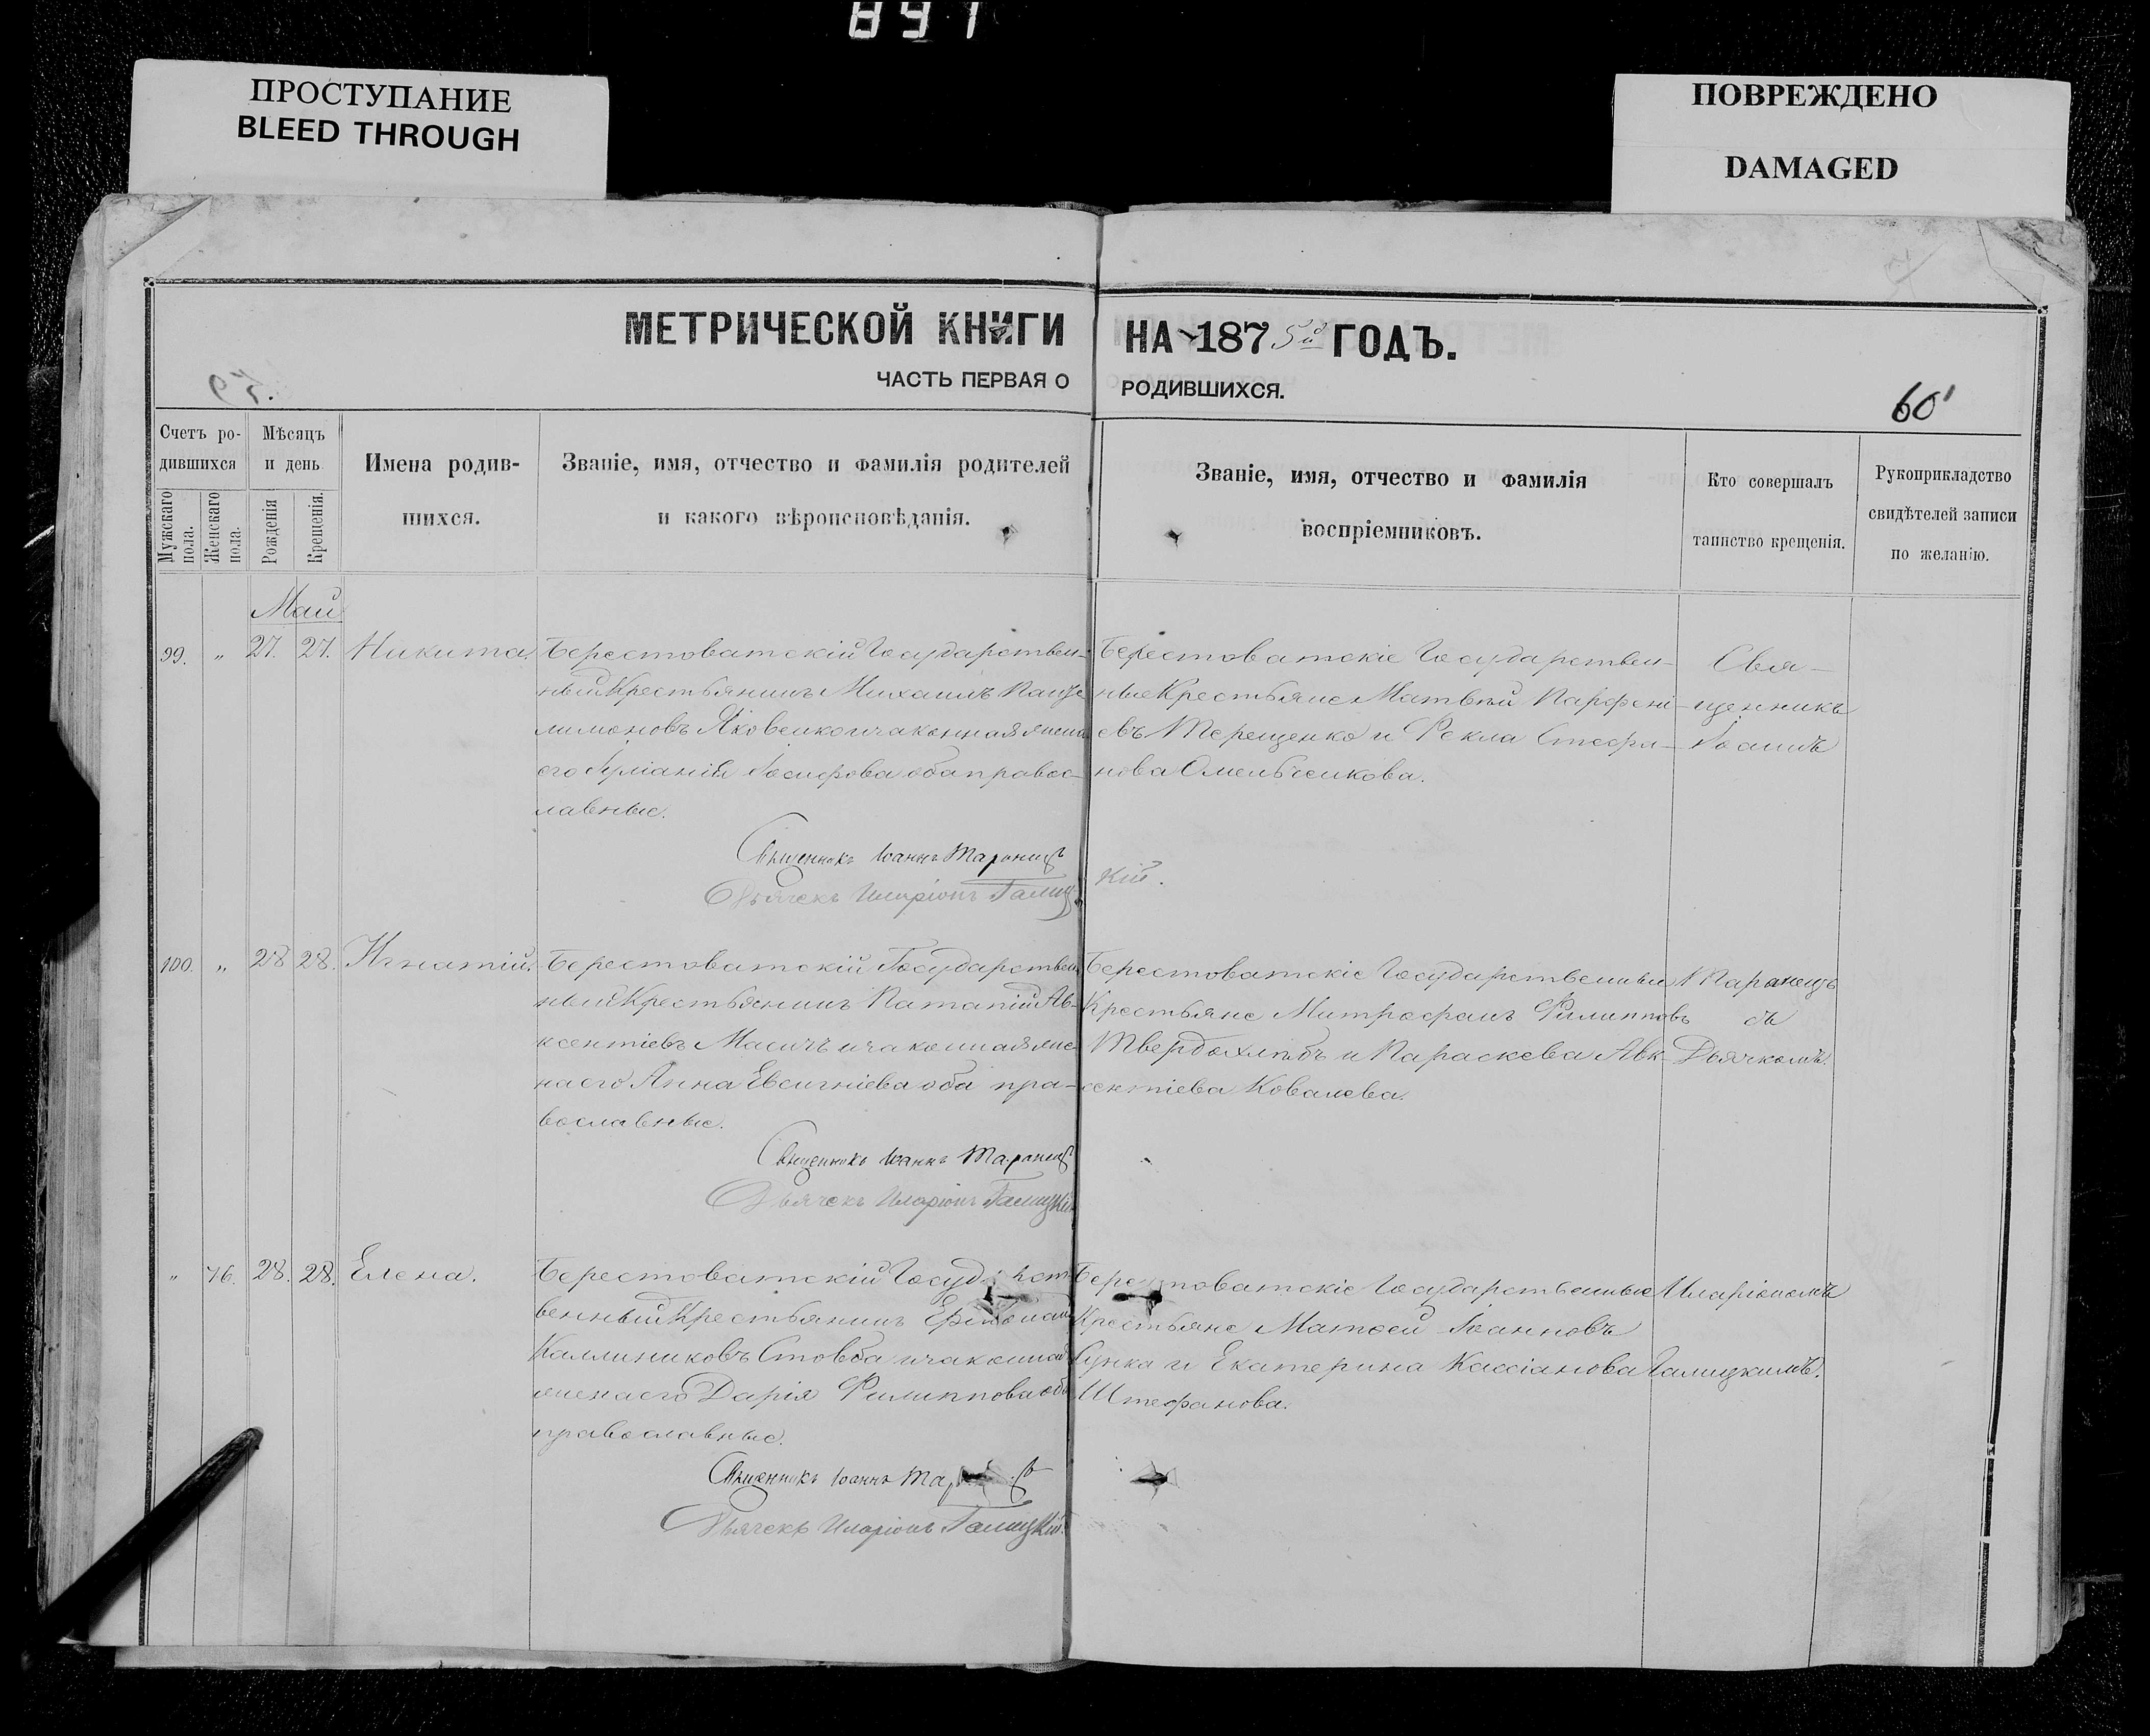 891
ПРОСТУПАНИЕ
BLEED THROUGH
ПОВРЕЖДЕНО
DAMAGED
МЕТРИЧЕСКОЙ КНИГИ НА 1875й ГОДЪ.
ЧАСТЬ ПЕРВАЯ О РОДИВШИХСЯ.
60
Счетъ ро-
дившихся
Мужскаго пола.
Женскаго пола.
Мѣсяцъ
и день
Рожденія
Крещенія.
Имена родив-
шихся.
Званіе, имя, отчество и фамилія родителей
и какого вѣроисповѣданія.
Званіе, имя, отчество и фамилія
воспріемниковъ.
Кто совершалъ
таинство крещенія.
Рукоприкладство
свидѣтелей записи
по желанію.
Май
99. „ 27. 27. Никита.
Берестоватскій Государствен-
ный Крестьянинъ Михаилъ
лимоновъ Яковенко и законная жена
его Іуліанія Іосифова оба правос-
лавные.
Священникъ Іоаннъ Таранецъ
Дьячекъ Иларіонъ Галицкій.
Берестоватскіе Государствен-
ные Крестьяне Матвѣй Парфені-
евъ Терещенко и Фекла Стефа-
нова Омельченкова.
Свя-
щенникъ
Іоаннъ
100. „ 28 28. Игнатій.
Берестоватскій Государствен
ный Крестьянинъ Патапій Ав-
ксентіевъ Масичъ и законная же-
на его Анна Евсигніева оба пра-
вославные.
Священникъ Іоаннъ Таранецъ
Дьячекъ Иларіонъ Галицкій
Берестоватскіе Государственные
Крестьяне Митрофанъ Филипповъ
Твердохлѣбъ и Параскева Авк-
сентіева Ковалева.
Таранецъ
съ
Дьячкомъ
„ 76. 28. 28. Елена.
Берестоватскій Госуд рст
венный Крестьянинъ
Каллиниковъ Стовба и законная
жена его Дарія Филиппова оба
православные.
Священникъ Іоаннъ
Дьячекъ Иларіонъ Галицкій.
Бере товатскіе Государственные
Крестьяне Матѳей Іоанновъ
и Екатерина Кассіанова
Штефанова.
Иларіономъ
Галицкимъ.